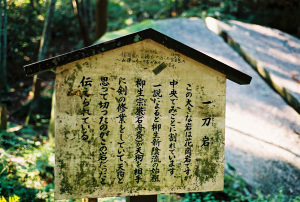 一刀岩
この大きな岩は花崗岩です。
中央でみごとに割れています。
一説によると柳生新陰流の始祖
柳生宗厳石舟斎が天狗を相手
に剣の修業をしていて天狗と
思って切ったのがこの岩だったと
伝えられている。